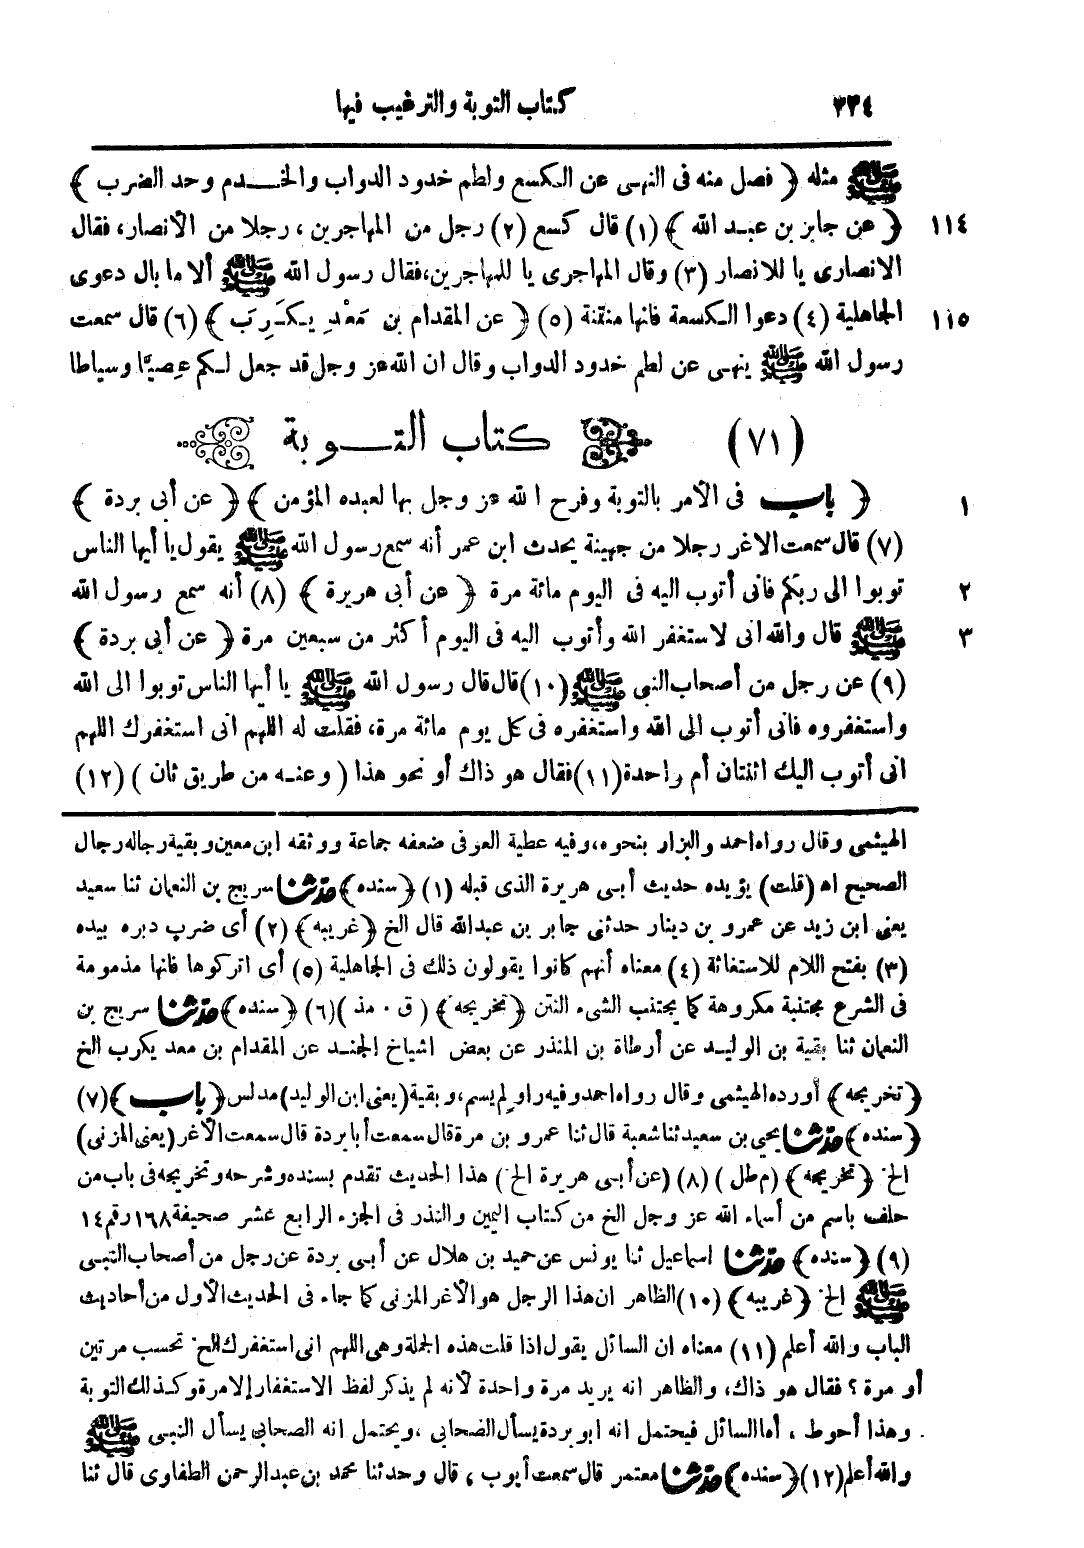 ٣٣٤ كتاب التوبة والترغيب فيها
ﷺ مثله ﴿ فصل منه فى النهى عن الكسع ولطم خدود الدواب والخــدم وحد الضرب ﴾
١١٤ ﴿ عن جابر بن عبد الله ﴾ (١) قال كسع (٢) رجل من المهاجرين ، رجلا من الأنصار، فقال
الانصارى يا للانصار (٣) وقال المهاجرى يا للمهاجرين،فقال رسول الله ﷺ ألا ما بال دعوى
١١٥ الجاهلية (٤) دعوا الكسعة فانها منتنة (٥) ﴿ عن المقدام بن مَعْدِ يـكَرِبَ ﴾ (٦) قال سمعت
رسول الله ﷺ ينهى عن لطم خدود الدواب وقال ان الله عز وجل قد جعل لـكم عِصِيًّا وسياطا
(٧١) كتاب التــوبة
١ ﴿ باب فى الأمر بالتوبة وفرح الله عز وجل بها لعبده المؤمن ﴾ ﴿ عن أبى بردة ﴾
(٧) قال سمعت الاغر رجلا من جهينة يحدث ابن عمر أنه سمع رسول الله ﷺ يقول يا أيها الناس
٢ توبوا الى ربكم فانى أتوب اليه فى اليوم مائة مرة ﴿ عن أبى هريرة ﴾ (٨) أنه سمع رسول الله
٣ ﷺ قال والله انى لاستغفر الله وأتوب اليه فى اليوم أكثر من سبعين مرة ﴿ عن أبى بردة ﴾
(٩) عن رجل من أصحاب النبى ﷺ (١٠) قال قال رسول الله ﷺ يا أيها الناس توبوا الى الله
واستغفروه فانى أتوب الى الله واستغفره فى كل يوم مائة مرة، فقلت له اللهم انى استغفرك اللهم
انى أتوب اليك اثنتان أم واحدة (١١) فقال هو ذاك أو نحو هذا ( وعنـه من طريق ثان ) (١٢)
الهيثمى وقال رواه احمد والبزار بنحوه،وفيه عطية العوفى ضعفه جماعة ووثقه ابن معين وبقية رجاله رجال
الصحيح اه (قلت) يؤيده حديث أبى هريرة الذى قبله (١) ﴿سنده﴾ حدثنا سريج بن النعمان ثنا سعيد
يعنى ابن زيد عن عمرو بن دينار حدثنى جابر بن عبدالله قال الخ ﴿غريبه﴾ (٢) أى ضرب دبره بيده
(٣) بفتح اللام للاستغاثة (٤) معناه أنهم كانوا يقولون ذلك فى الجاهلية (٥) أى اتركوها فانها مذمومة
فى الشرع مجتنبة مكروهة كما يجتنب الشىء النتن ﴿تخريجه﴾ ( ق . مذ ) (٦) ﴿سنده﴾ حدثنا سريج بن
النعمان ثنا بقية بن الوليـد عن أرطاة بن المنذر عن بعض اشياخ الجنـد عن المقدام بن معد يكرب الخ
﴿تخريجه﴾ أورده الهيثمى وقال رواه احمد وفيه راوٍ لم يسم،وبقية (يعنى ابن الوليد) مدلس ﴿باب﴾ (٧)
﴿سنده﴾ حدثنا يحيى بن سعيد ثنا شعبة قال ثنا عمرو بن مرة قال سمعت أبا بردة قال سمعت الأغر (يعنى المزنى)
الخ ﴿تخريجه﴾ (م طل) (٨) (عن أبى هريرة الخ) هذا الحديث تقدم بسنده وشرحه وتخريجه فى باب من
حلف باسم من أسماء الله عز وجل الخ من كتاب اليمين والنذر فى الجزء الرابع عشر صحيفة ١٦٨ رقم ١٤
(٩) ﴿سنده﴾ حدثنا اسماعيل ثنا يونس عن حميد بن هلال عن أبى بردة عن رجل من أصحاب النبى
ﷺ الخ ﴿غريبه﴾ (١٠) الظاهر ان هذا الرجل هو الأغر المزنى كما جاء فى الحديث الأول من أحاديث
الباب والله أعلم (١١) معناه ان السائل يقول اذا قلت هذه الجملة وهى اللهم انى استغفرك الخ تحسب مرتين
أو مرة ؟ فقال هو ذاك، والظاهر انه يريد مرة واحدة لأنه لم يذكر لفظ الاستغفار إلا مرة وكذلك التوبة
وهذا أحوط ، أما السائل فيحتمل انه ابو بردة يسأل الصحابى ،ويحتمل انه الصحابى يسأل النبى ﷺ
والله أعلم (١٢) ﴿سنده﴾ حدثنا معتمر قال سمعت أيوب ، قال وحدثنا محمد بن عبدالرحمن الطفاوى قال ثنا